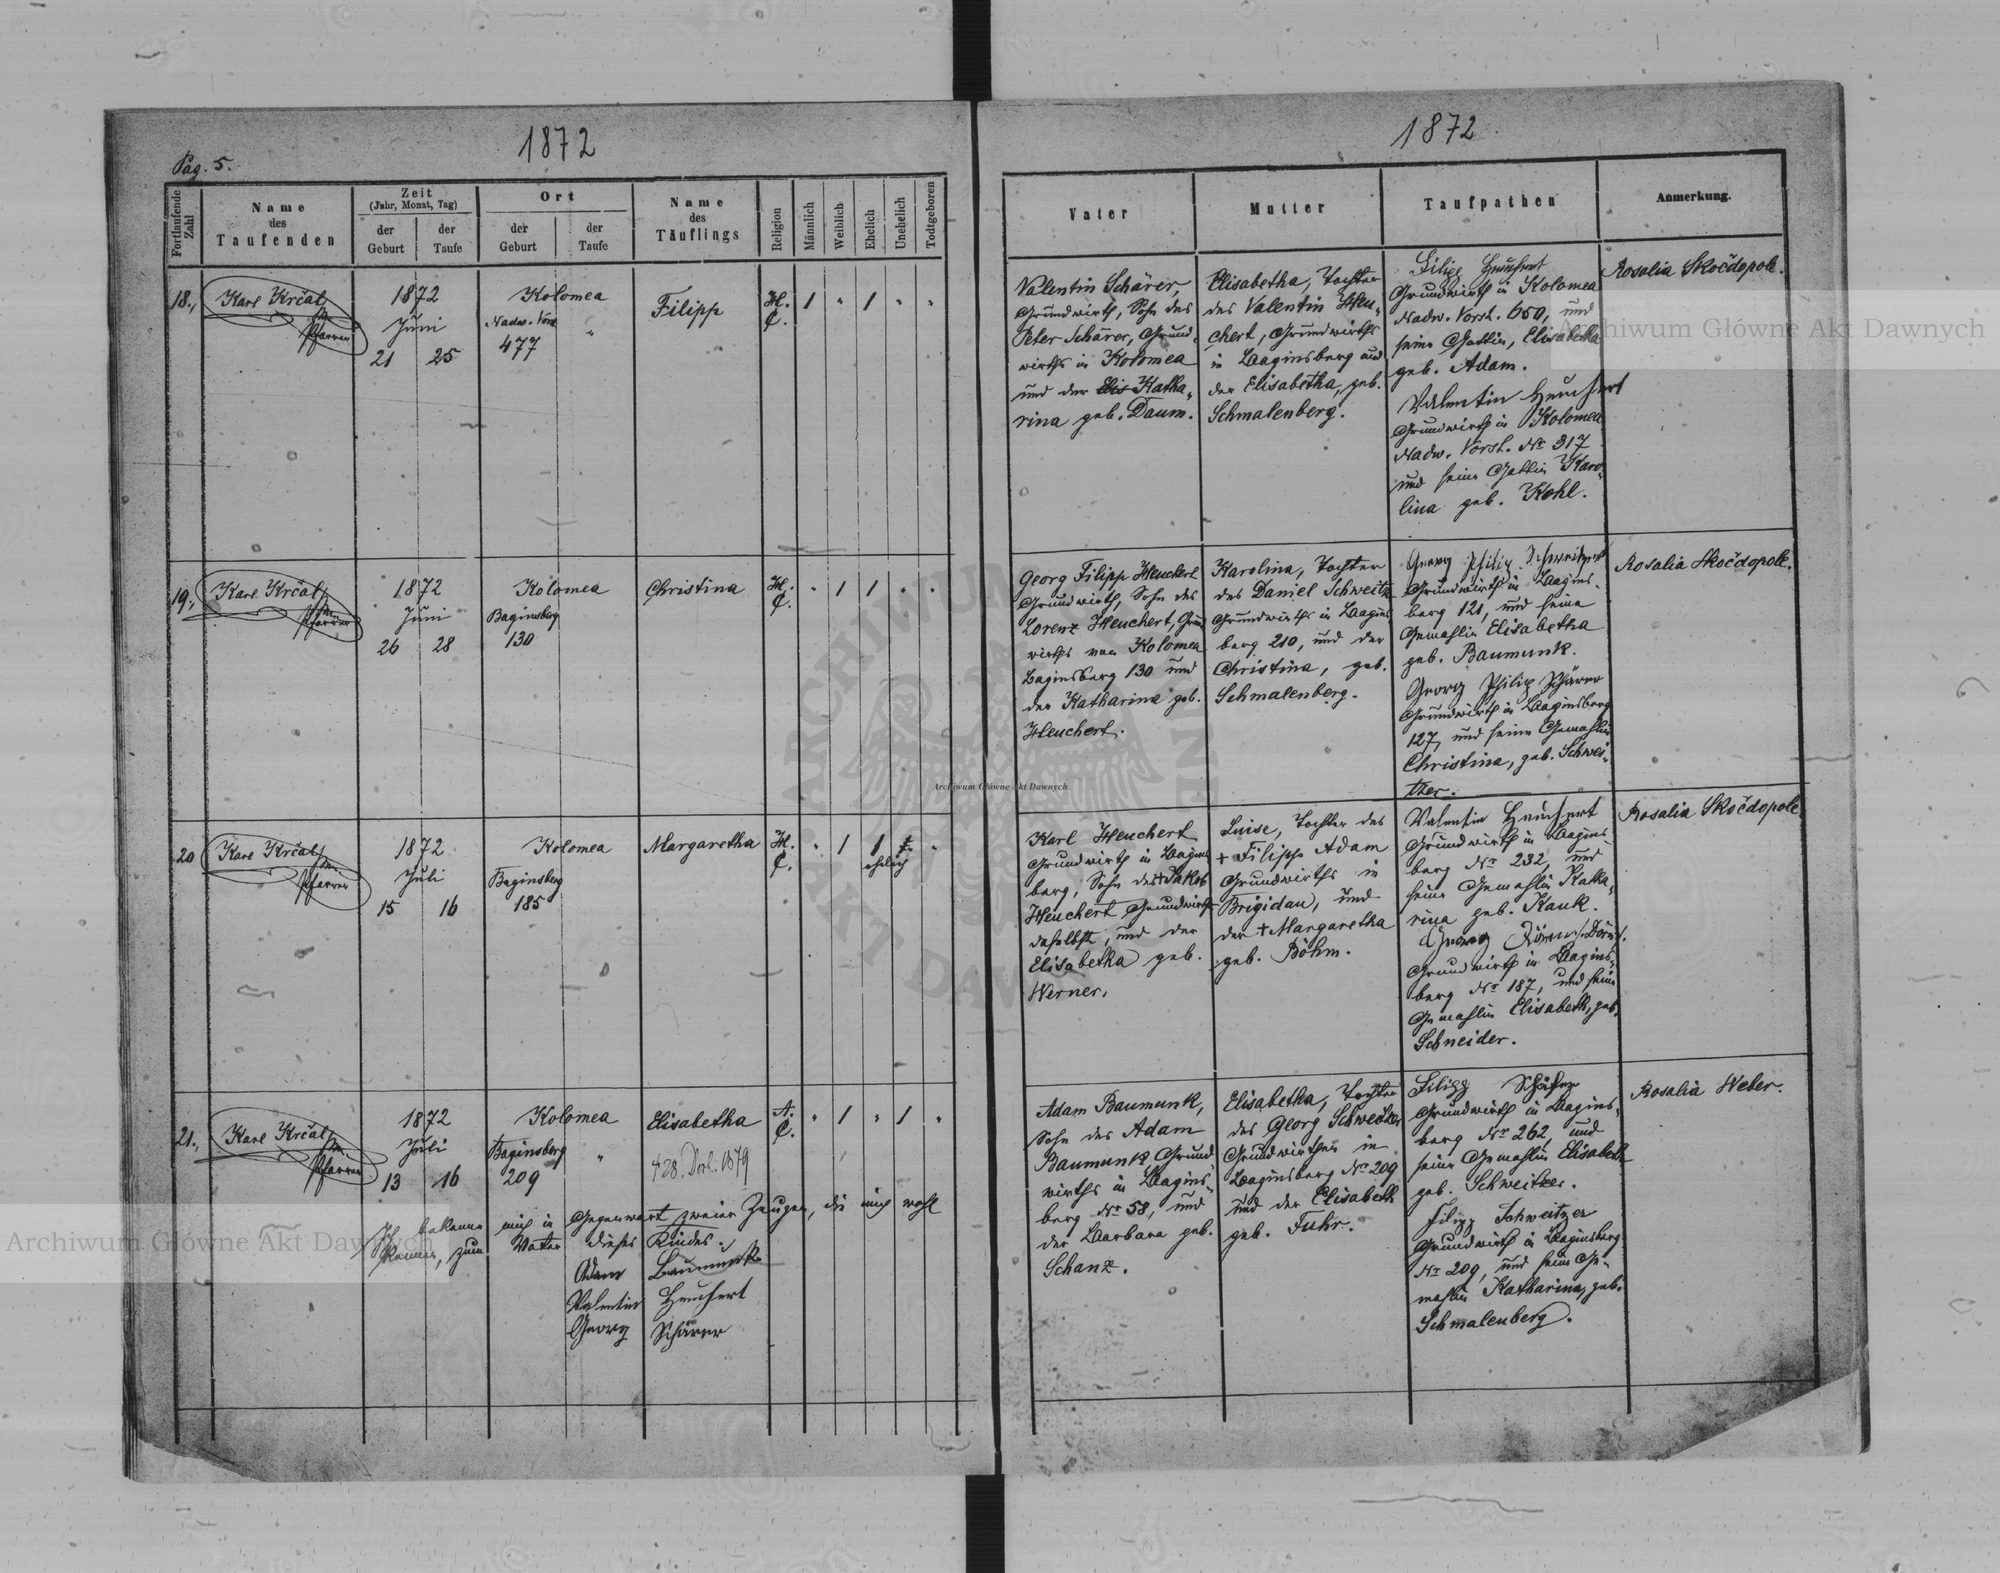 1872
Pag. 5.
Fortlaufende Zahl
Name des Taufenden
Zeit
(Jahr, Monat, Tag)
der Geburt
der Taufe
Ort
der Geburt
der Taufe
Name des Täuflings
Religion
Männlich
Weiblich
Ehelich
Unehelich
Todtgeboren
18.,
Karl Krčal
Pfarrer
1872
Juni
21 25
Kolomea
Nadw. Vorst. "
477
Filipp
H. C.
/ " / " "
19.,
Karl Krčal
Pfarrer
1872
Juni
26 28
Kolomea
Baginsberg
130
Christina
H. C.
" / / " "
20
Karl Krčal
Pfarrer
1872
Juli
15 16
Kolomea
Baginsberg
185
Margaretha
H. C.
" / / "
ehelich
21.,
Karl Krčal
Pfarrer
1872
Juli
13 16
Kolomea
Baginsberg "
209
Elisabetha
† 28. Dez. 1879
A. C.
" / " / "
Ich bekenne mich in Gegenwart zweier Zeugen, die mich wohl
kennen, zum Vater dieses Kindes.
Adam Baumunk
Valentin Heuchert
Georg Schärer
1872
Vater
Mutter
Taufpathen
Anmerkung.
Valentin Schärer,
Grundwirth, Sohn des
Peter Schärer, Grund-
wirths in Kolomea
und der Elis Katha-
rina geb. Daum.
Elisabetha, Tochter
des Valentin Heu-
chert, Grundwirths
in Baginsberg und
der Elisabetha, geb.
Schmalenberg.
Filipp Heuchert
Grundwirth in Kolomea
Nadw. Vorst. 650, und
seine Gattin, Elisabetha
geb. Adam.
Valentin Heuchert
Grundwirth in Kolomea
Nadw. Vorst. Nr 317
und seine Gattin Karo-
lina geb. Kohl.
Rosalia Skočdopole.
Georg Filipp Heuchert
Grundwirth, Sohn des
Lorenz Heuchert, Grund
wirths von Kolomea
Baginsberg 130 und
der Katharina geb.
Heuchert.
Karolina, Tochter
des Daniel Schweitz
Grundwirths in Bagins
berg 210, und der
Christina, geb.
Schmalenberg.
Georg Philip Schweitzer
Grundwirth in Bagins-
berg 121, und seine
Gemahlin Elisabetha
geb. Baumunk.
Georg Philip Schärer
Grundwirth in Baginsberg
127, und seine Gemahlin
Christina, geb. Schwei-
tzer.
Rosalia Skočdopole.
Karl Heuchert
Grundwirth in Bagins
berg, Sohn des † Jakob
Heuchert Grundwirth
daselbst, und der
Elisabetha geb.
Werner.
Luise, Tochter des
† Filipp Adam
Grundwirths in
Brigidau, und
der † Margaretha
geb. Böhm.
Valentin Heuchert
Grundwirth in Bagins-
berg Nr 232, und
seine Gemahlin Katha-
rina geb. Kauk.
Georg
Grundwirth in Bagins-
berg Nr 187, und seine
Gemahlin Elisabeth, geb.
Schneider.
Rosalia Skočdopole
Adam Baumunk,
Sohn des Adam
Baumunk Grund-
wirths in Bagins-
berg Nr 58, und
der Barbara geb.
Schanz.
Elisabetha, Tochter
des Georg Schweitzer
Grundwirthen in
Baginsberg Nr 209
und der Elisabeth
geb. Fuhr.
Filipp Schäfer
Grundwirth in Bagins-
berg Nr 262, und
seine Gemahlin Elisabeth
geb. Schweitzer.
Filipp Schweitzer
Grundwirth in Baginsberg
Nr 209, und seine Ge-
mahlin Katharina, geb.
Schmalenberg.
Rosalia Weber.
Archiwum Główne Akt Dawnych
Archiwum Główne Akt Dawnych
Archiwum Główne Akt Dawnych